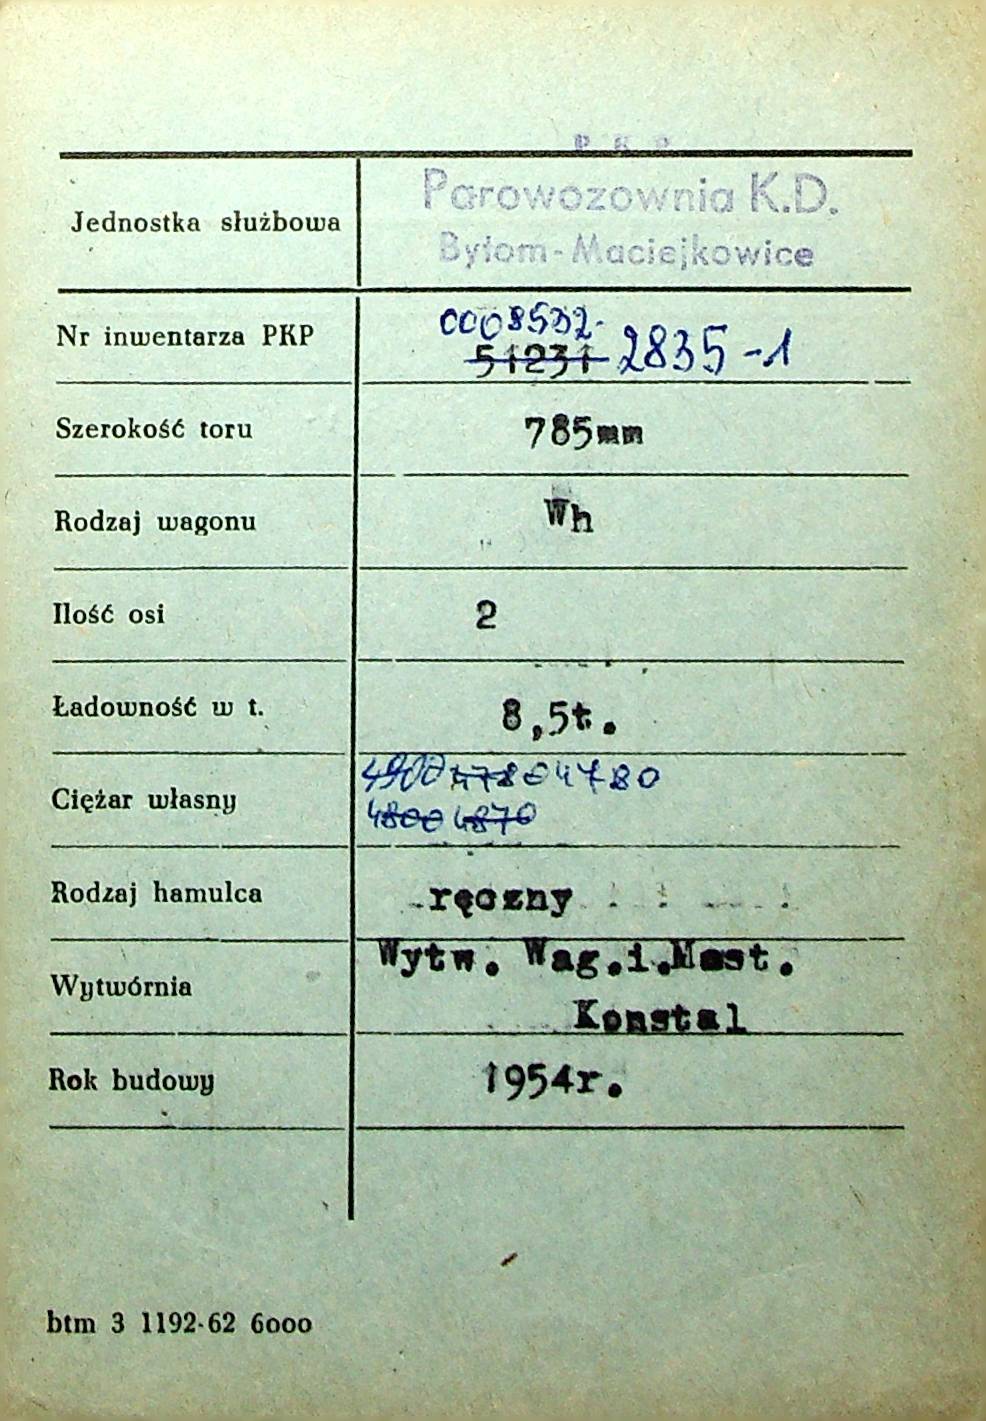 P K P
Jednostka służbowa
Parowozownia K.D.
Bytom-Maciejkowice
Nr inwentarza PKP
0008532-
51231 2835-1
Szerokość toru
785mm
Rodzaj wagonu
Wh
Ilość osi
2
Ładowność w t.
8,5t.
Ciężar własny
4900 4780 4780
4800 4870
Rodzaj hamulca
ręczny
Wytwórnia
Wytw. Wag.i.Most.
Konstal
Rok budowy
1954r.
btm 3 1192-62 6000